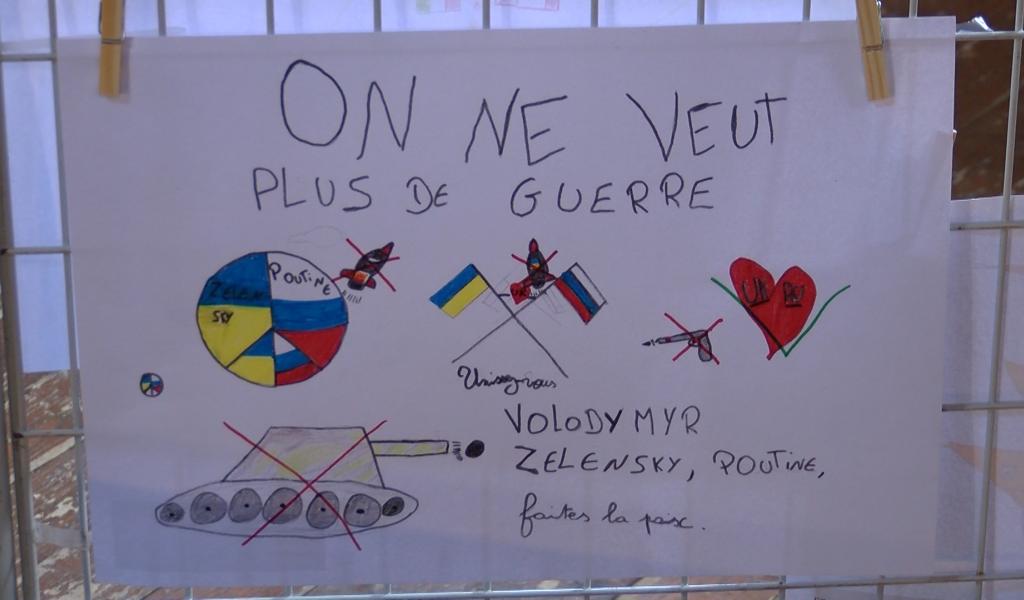 ON NE VEUT
PLUS DE GUERRE
POUTINE
ZELEN
SKY
UK RU
Unissez-vous
VOLODYMYR
ZELENSKY, POUTINE,
faites la paix.